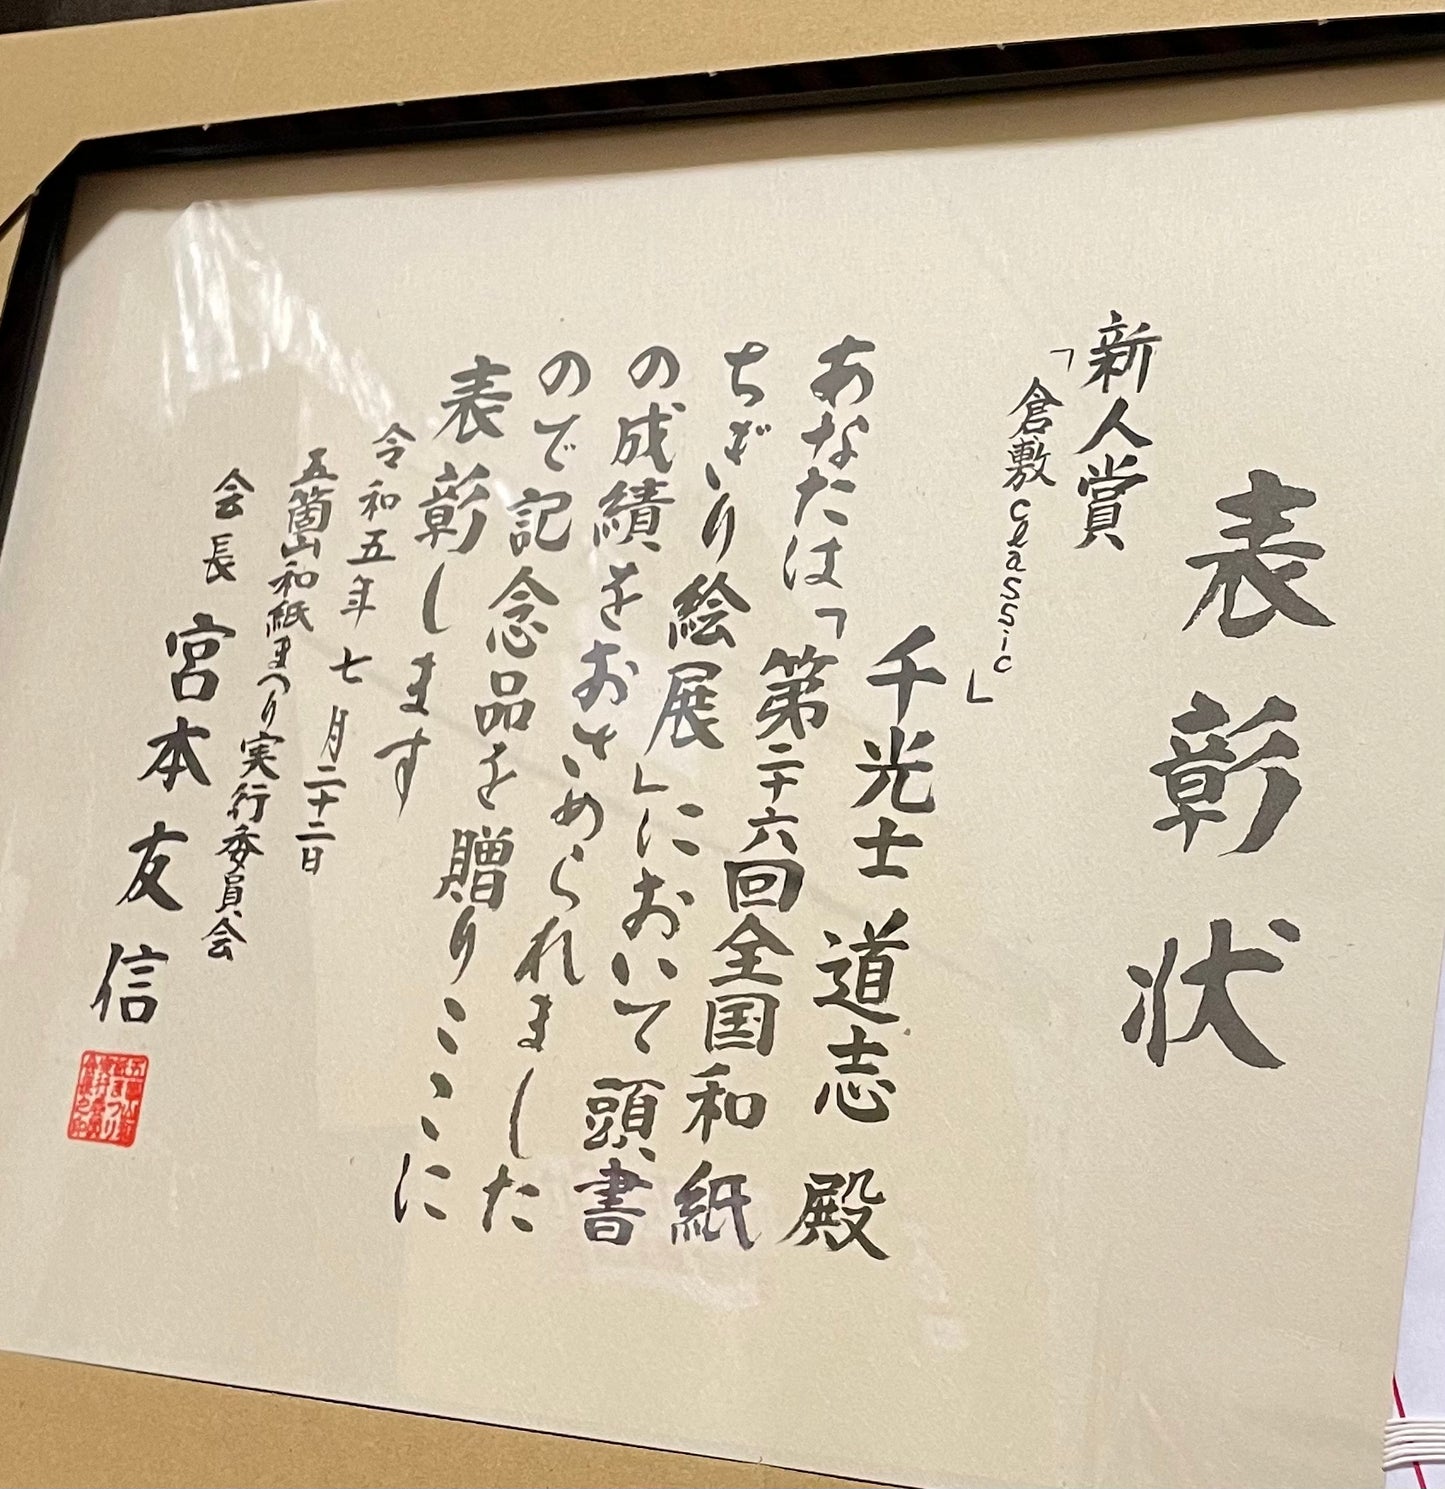 表彰状
新人賞
「倉敷classic」
千光士 道志 殿
あなたは「第二十六回全国和紙
ちぎり絵展」において頭書
の成績をおさめられました
ので記念品を贈りここに
表彰します
令和五年七月二十二日
五箇山和紙まつり実行委員会
会長 宮本友信